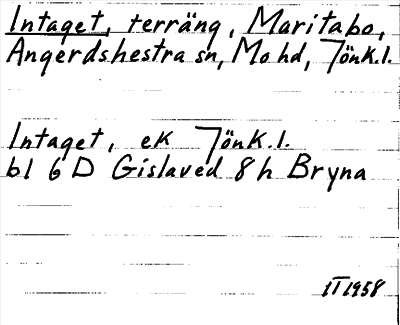 Intaget, terräng, Maritabo,
Angerdshestra sn, Mo hd, Jönk.l.
Intaget, ek Jönk.l.
bl 6 D Gislaved 8 h Bryna
II 1958